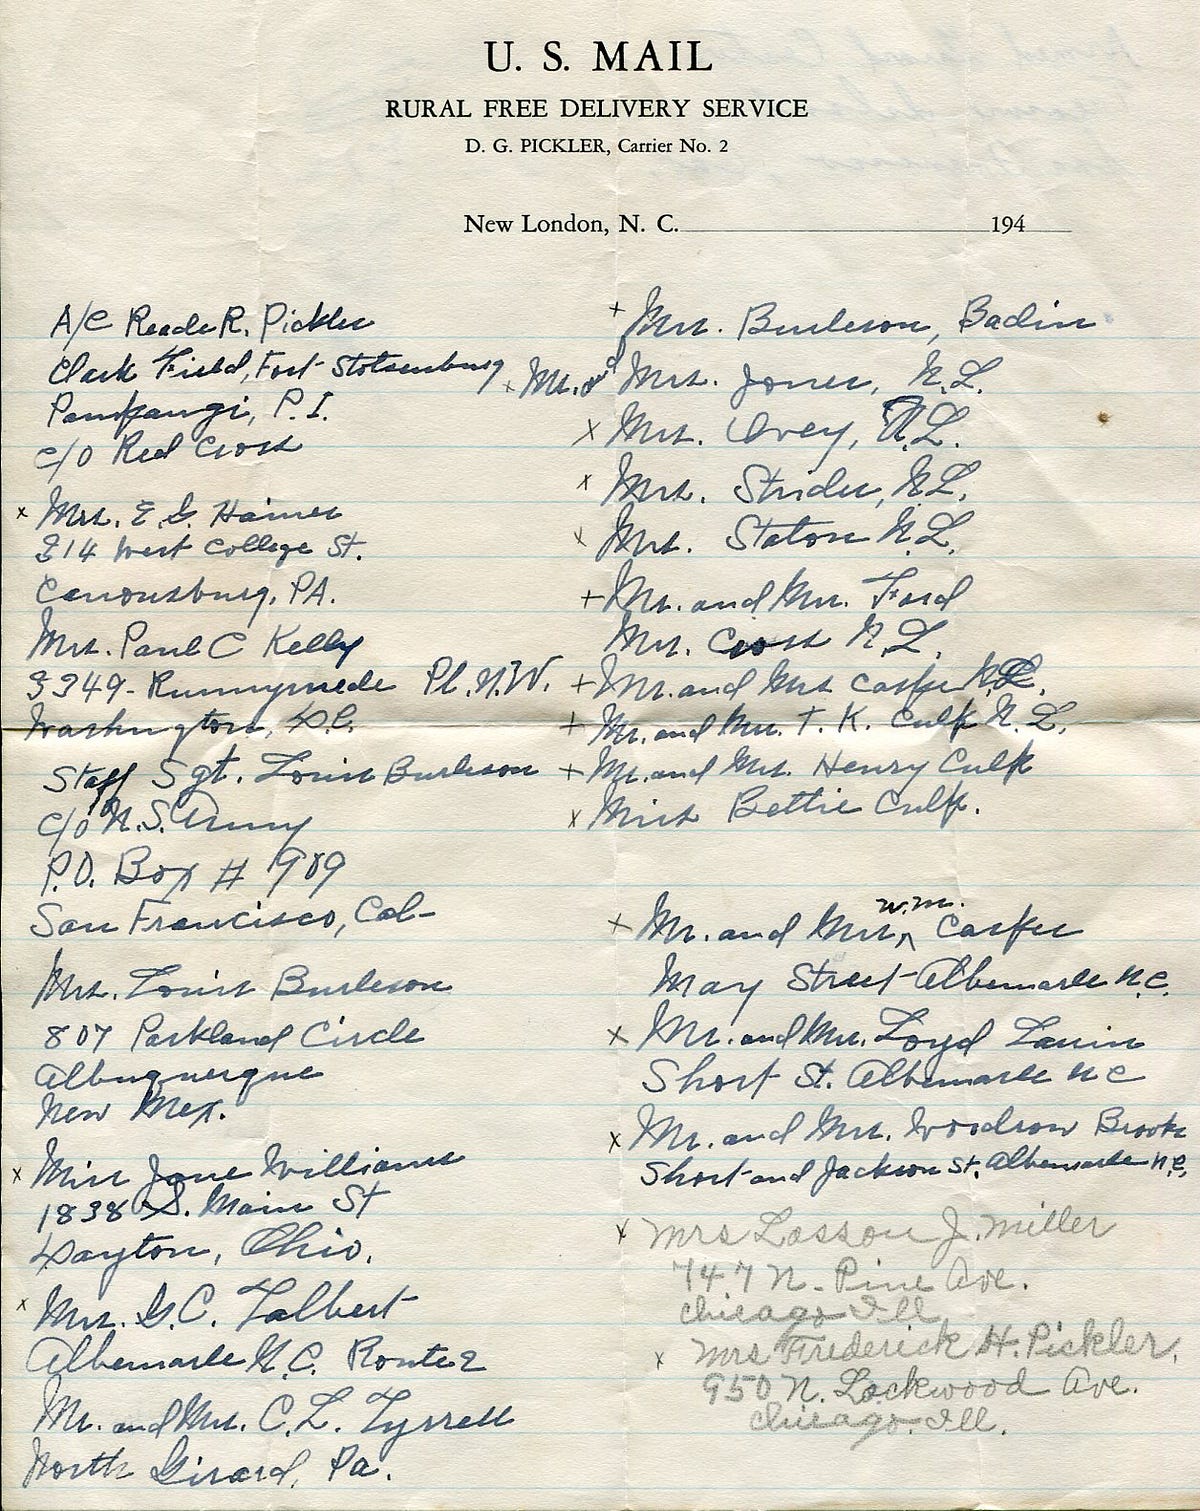 U. S. MAIL
RURAL FREE DELIVERY SERVICE
D. G. PICKLER, Carrier No. 2
New London, N. C. 194
A/C Reade R. Pickler
Clark Field, Fort Stotsenburg
Pampangi, P.I.
c/o Red Cross
x Mrs. E. G. Haines
314 West College St.
Canonsburg, PA.
Mrs. Paul C Kelly
3349 - Runnymede Pl. N.W.
Washington, D.C.
Staff Sgt. Louis Burleson
c/o U.S. Army
P.O. Box # 989
San Francisco, Cal-
Mrs. Louis Burleson
807 Parkland Circle
Albuquerque
New Mex.
x Miss Jane Williams
1838 S. Main St
Dayton, Ohio.
x Mrs. G.C. Talbert
Albemarle N.C. Route 2
Mr. and Mrs. C.L. Tyrrell
North Girard, Pa.
+ Mrs. Burleson, Badin
x Mr. & Mrs. Jones, N.L.
x Mrs. Ivey, N.L.
x Mrs. Strider, N.L.
x Mrs. Staton N.L.
+ Mr. and Mrs. Ford
Mrs. Cross N.L.
+ Mr. and Mrs Casper N.L.
+ Mr. and Mrs. T. K. Culp N.L.
+ Mr. and Mrs. Henry Culp
x Miss Bettie Culp.
+ Mr. and Mrs. W.M. Casper
May Street - Albemarle N.C.
x Mr. and Mrs. Loyd
Short St. Albemarle N C
x Mr. and Mrs. Woodrow Brooks
Short and Jackson St. Albemarle N.C.
x Mrs Lasson J. Miller
747 N. Pine Ave.
Chicago Ill
x Mrs Frederick H. Pickler,
950 N. Lockwood Ave.
Chicago. Ill.